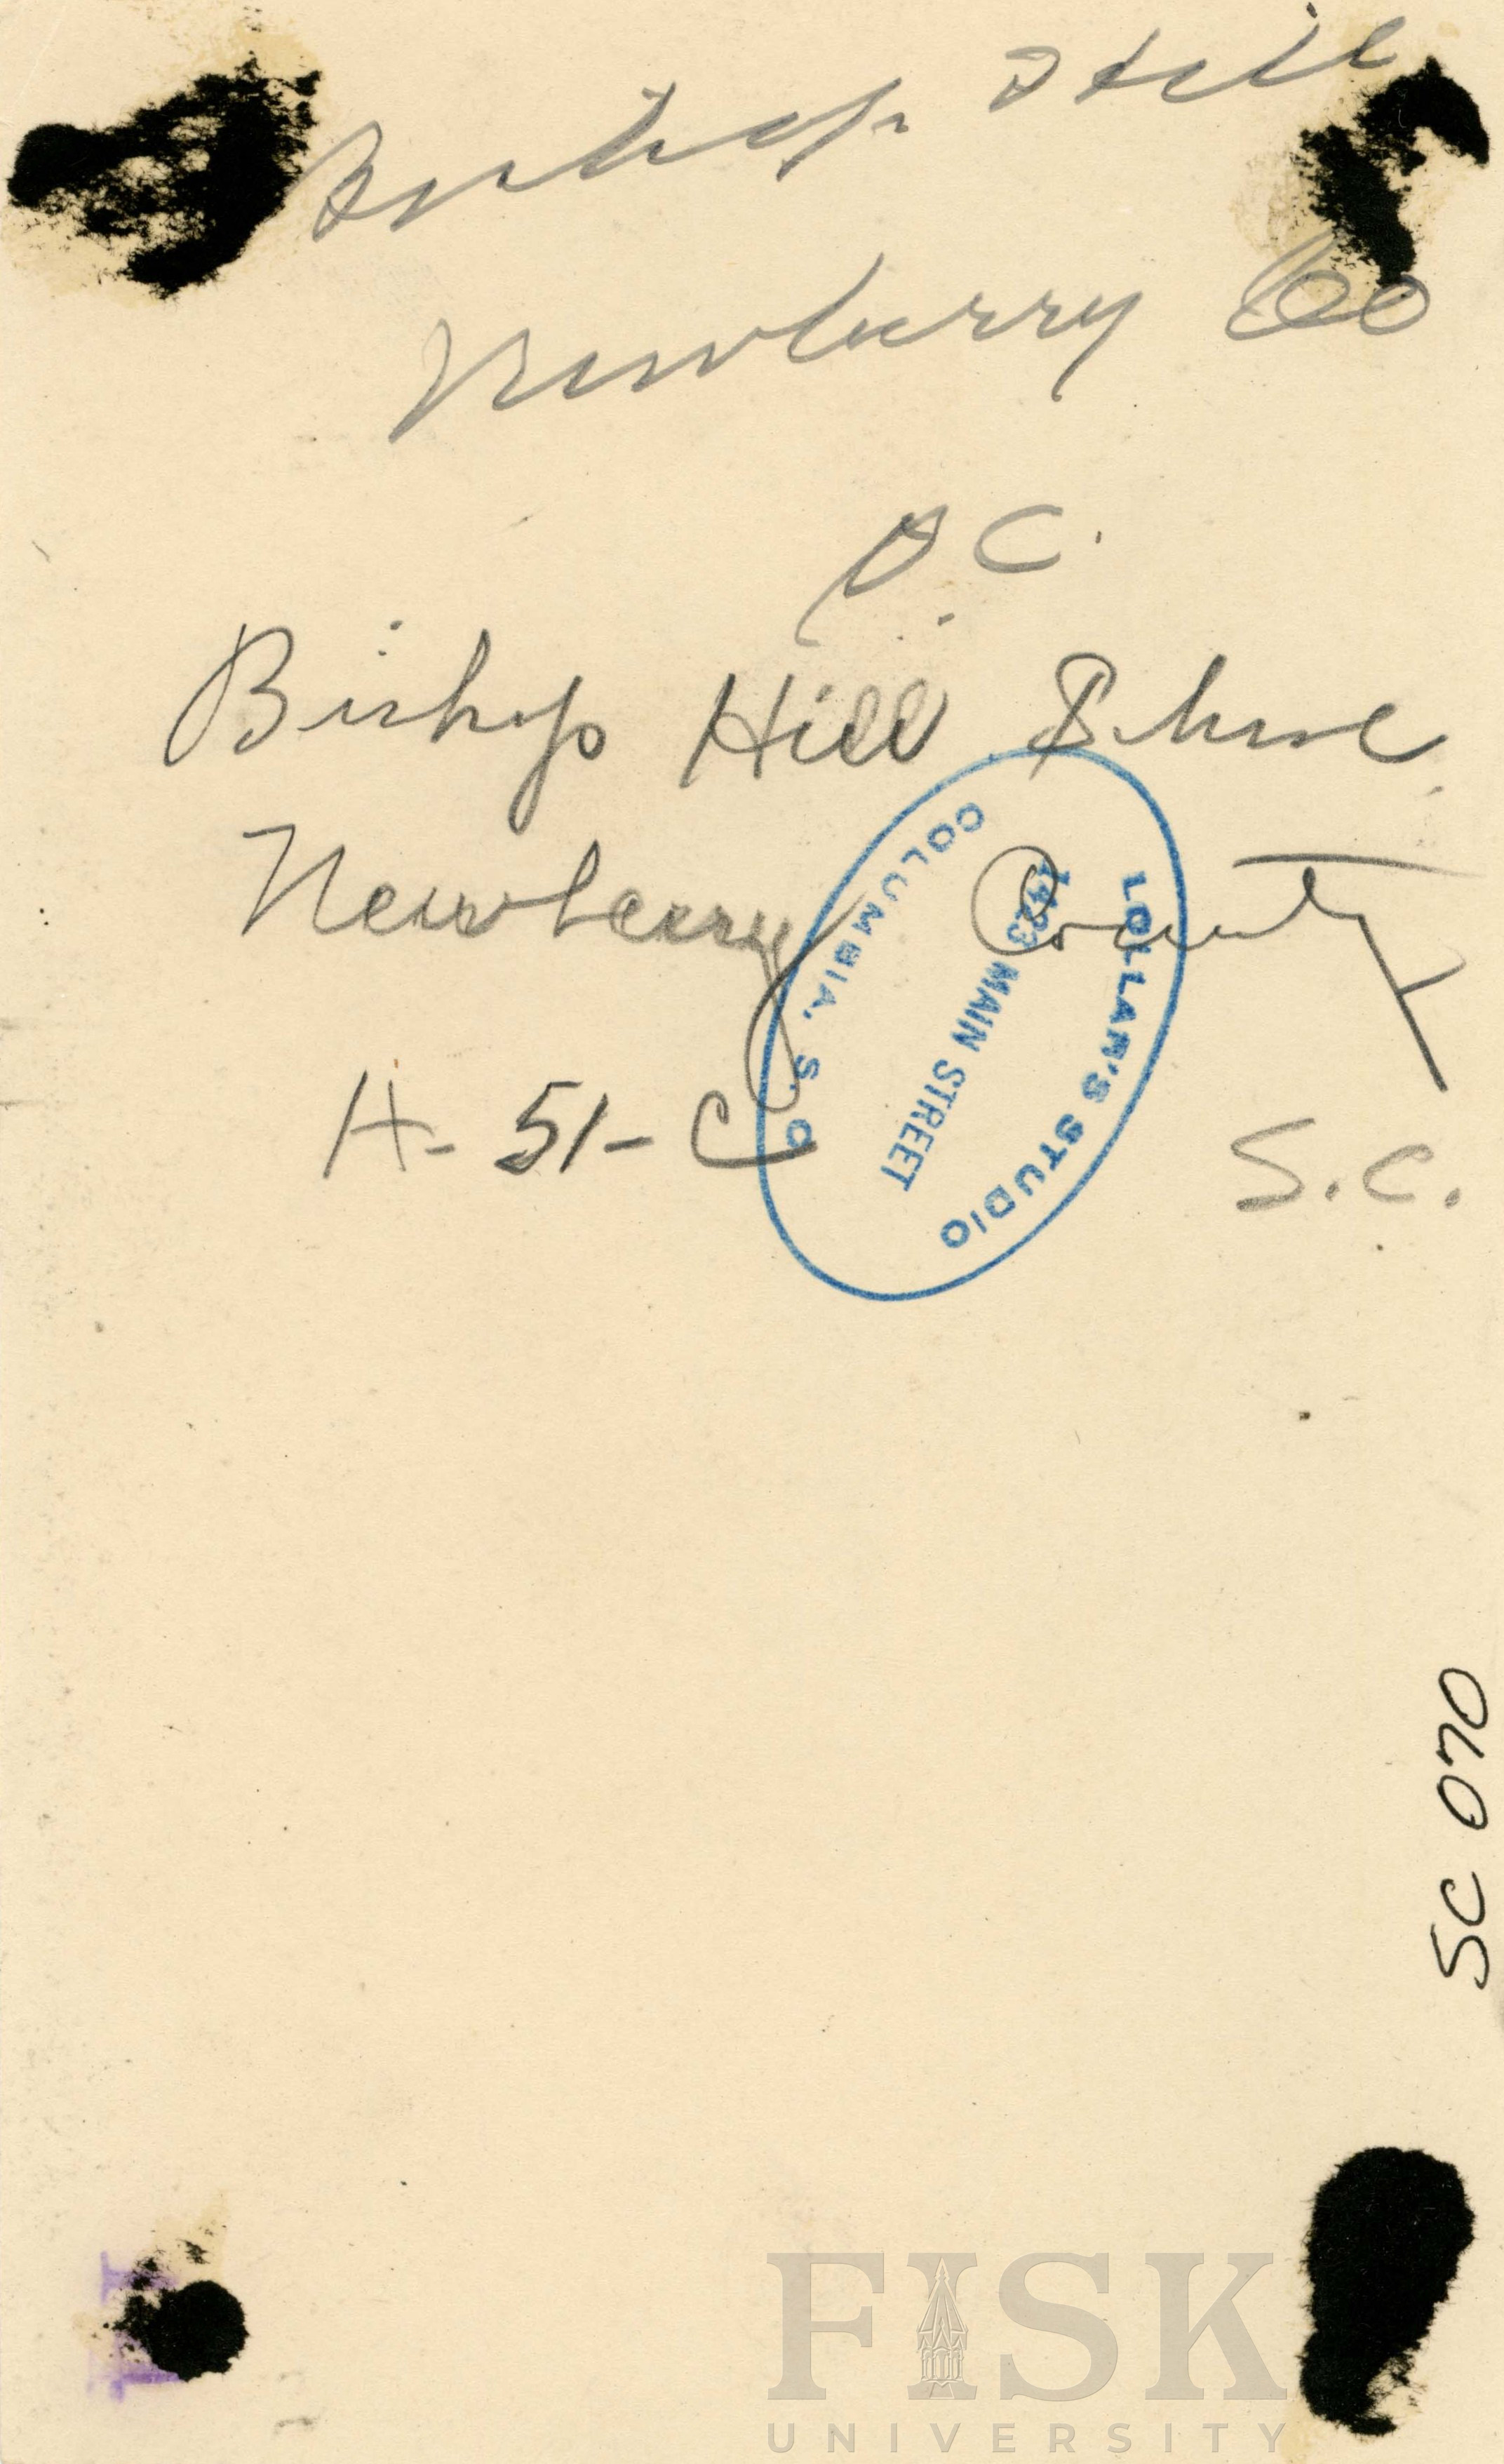 Bishop Hill
Newberry Co
S.C.
Bishop Hill School
Newberry County
H-51-C
S.C.
LOLLAR'S STUDIO
1423 MAIN STREET
COLUMBIA, S. C.
SC 070
FISK
UNIVERSITY